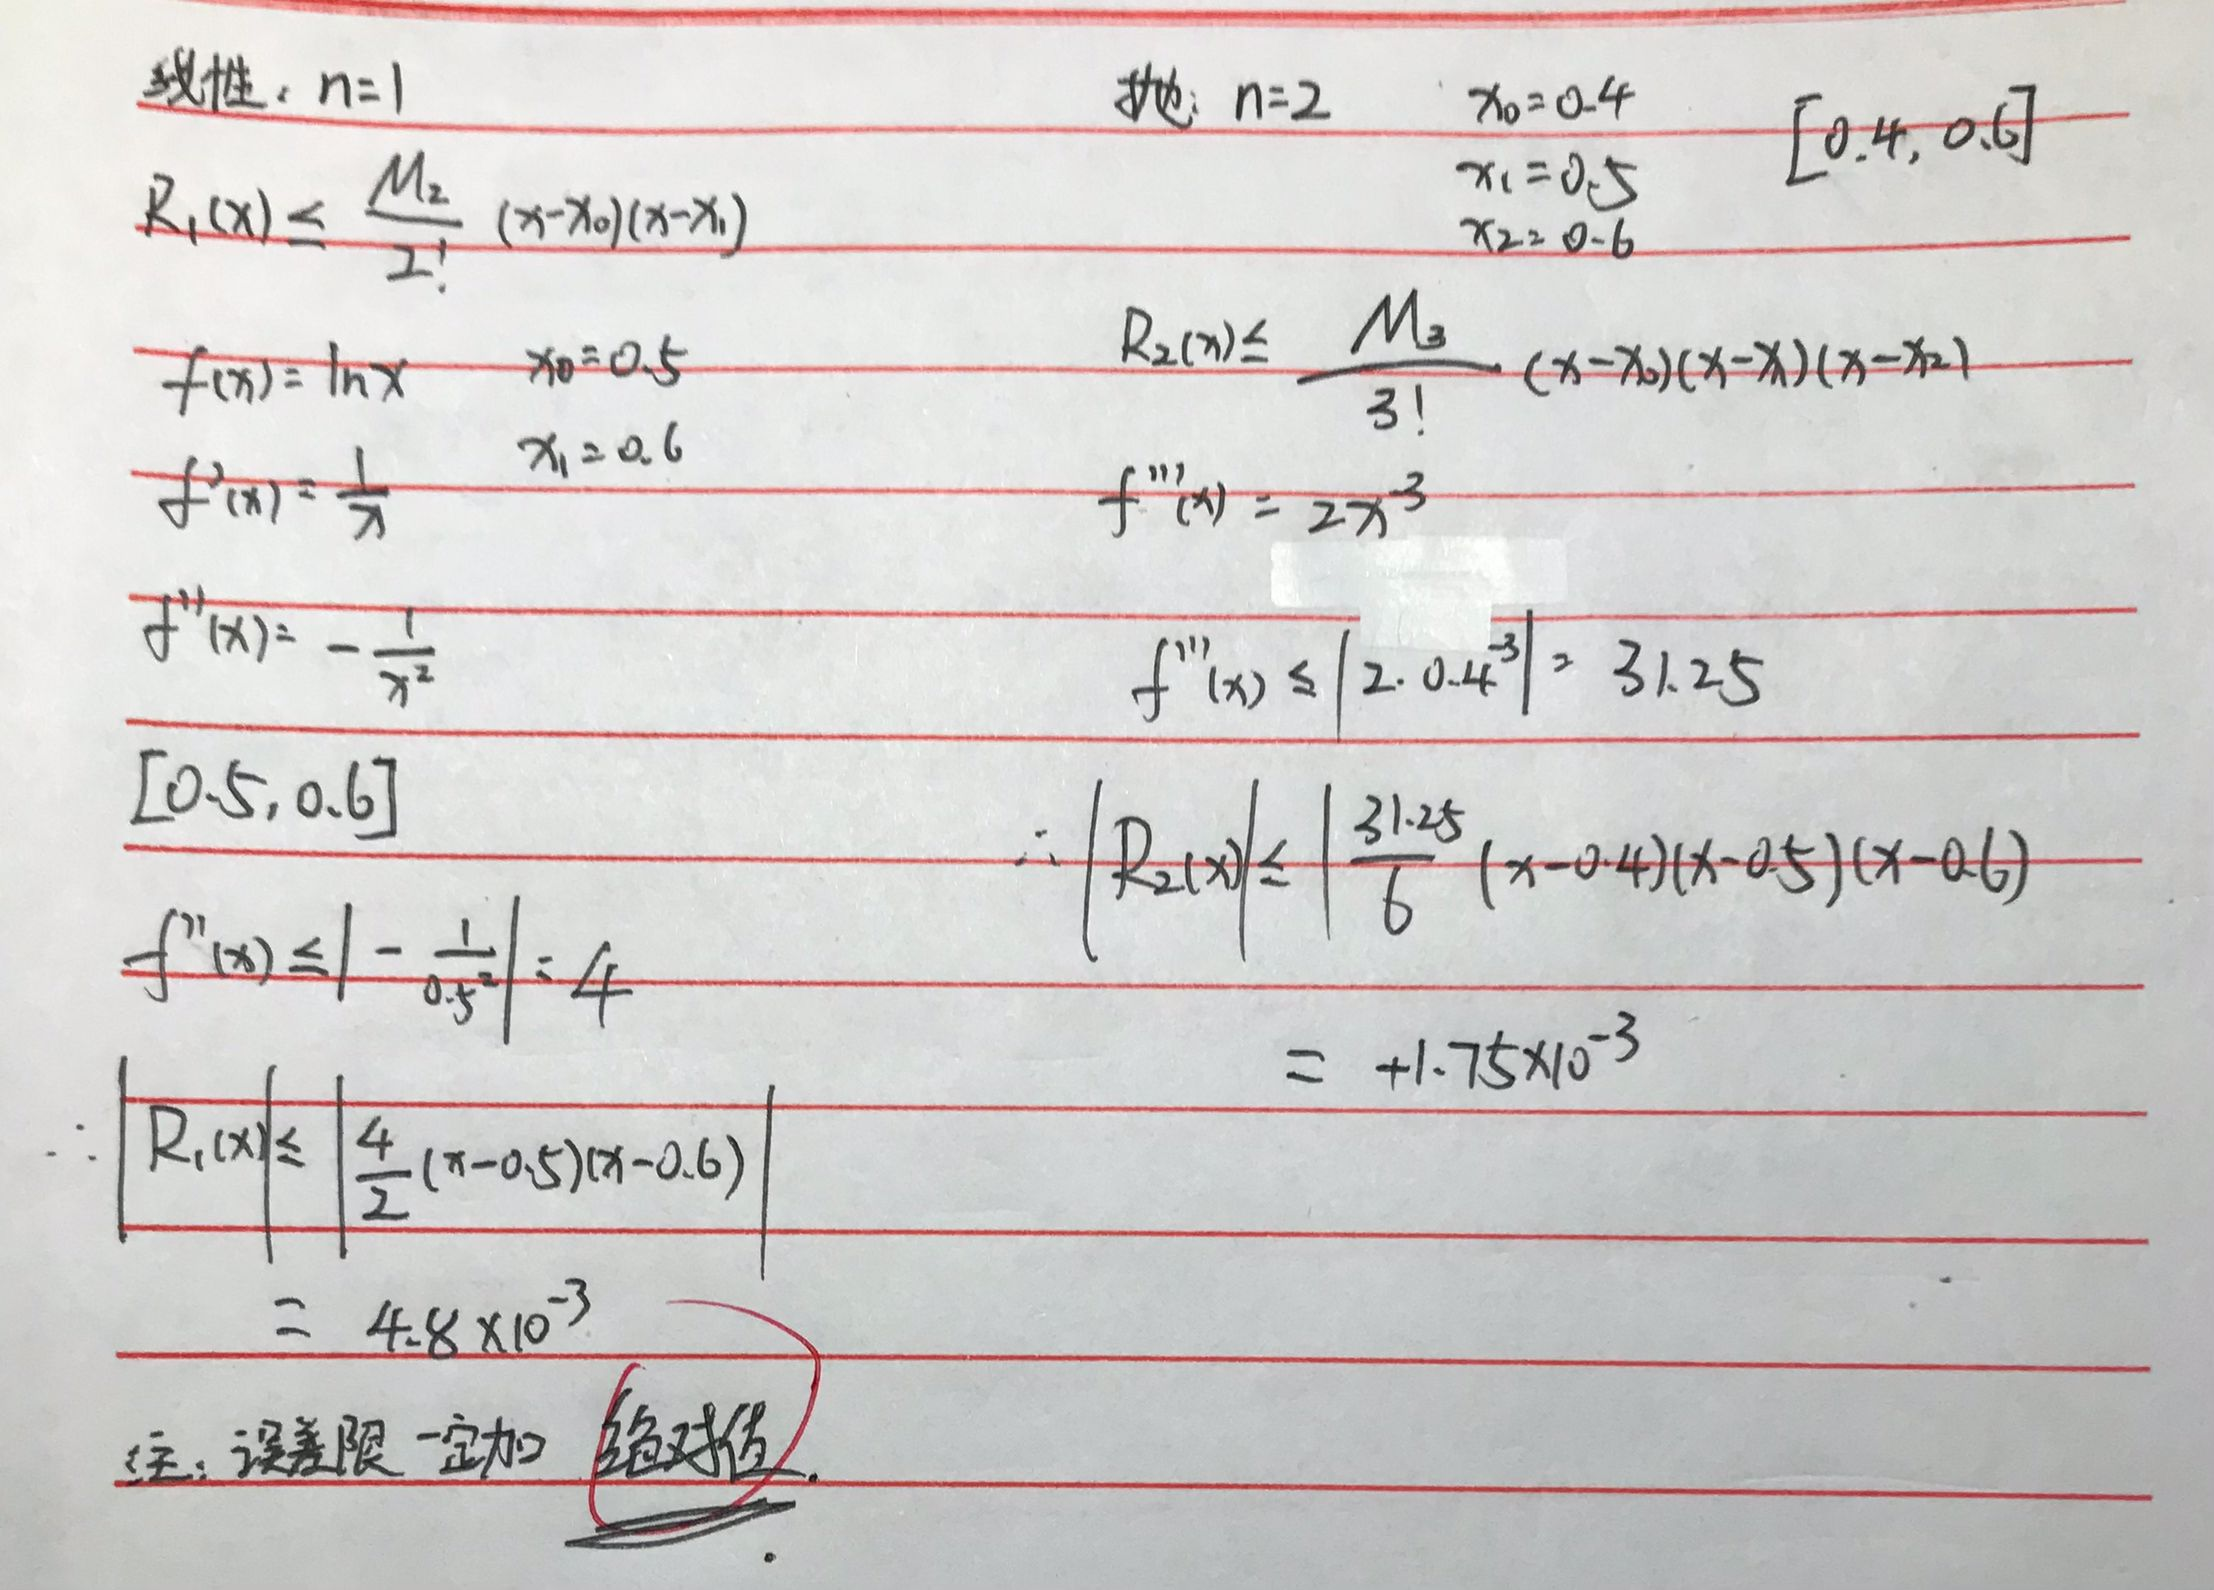 线性: n=1
R₁(x) ≤ M₂/2! (x-x₀)(x-x₁)
f(x) = lnx x₀=0.5
x₁=0.6
f'(x) = 1/x
f''(x) = - 1/x²
[0.5, 0.6]
f''(x) ≤ |- 1/0.5²| = 4
∴ |R₁(x)| ≤ |4/2 (x-0.5)(x-0.6)|
= 4.8×10⁻³
注: 误差限一定加 绝对值.
抛: n=2 x₀=0.4 [0.4, 0.6]
x₁=0.5
x₂=0.6
R₂(x) ≤ M₃/3! (x-x₀)(x-x₁)(x-x₂)
f'''(x) = 2x⁻³
f'''(x) ≤ |2·0.4⁻³| = 31.25
∴ |R₂(x)| ≤ |31.25/6 (x-0.4)(x-0.5)(x-0.6)
= +1.75×10⁻³